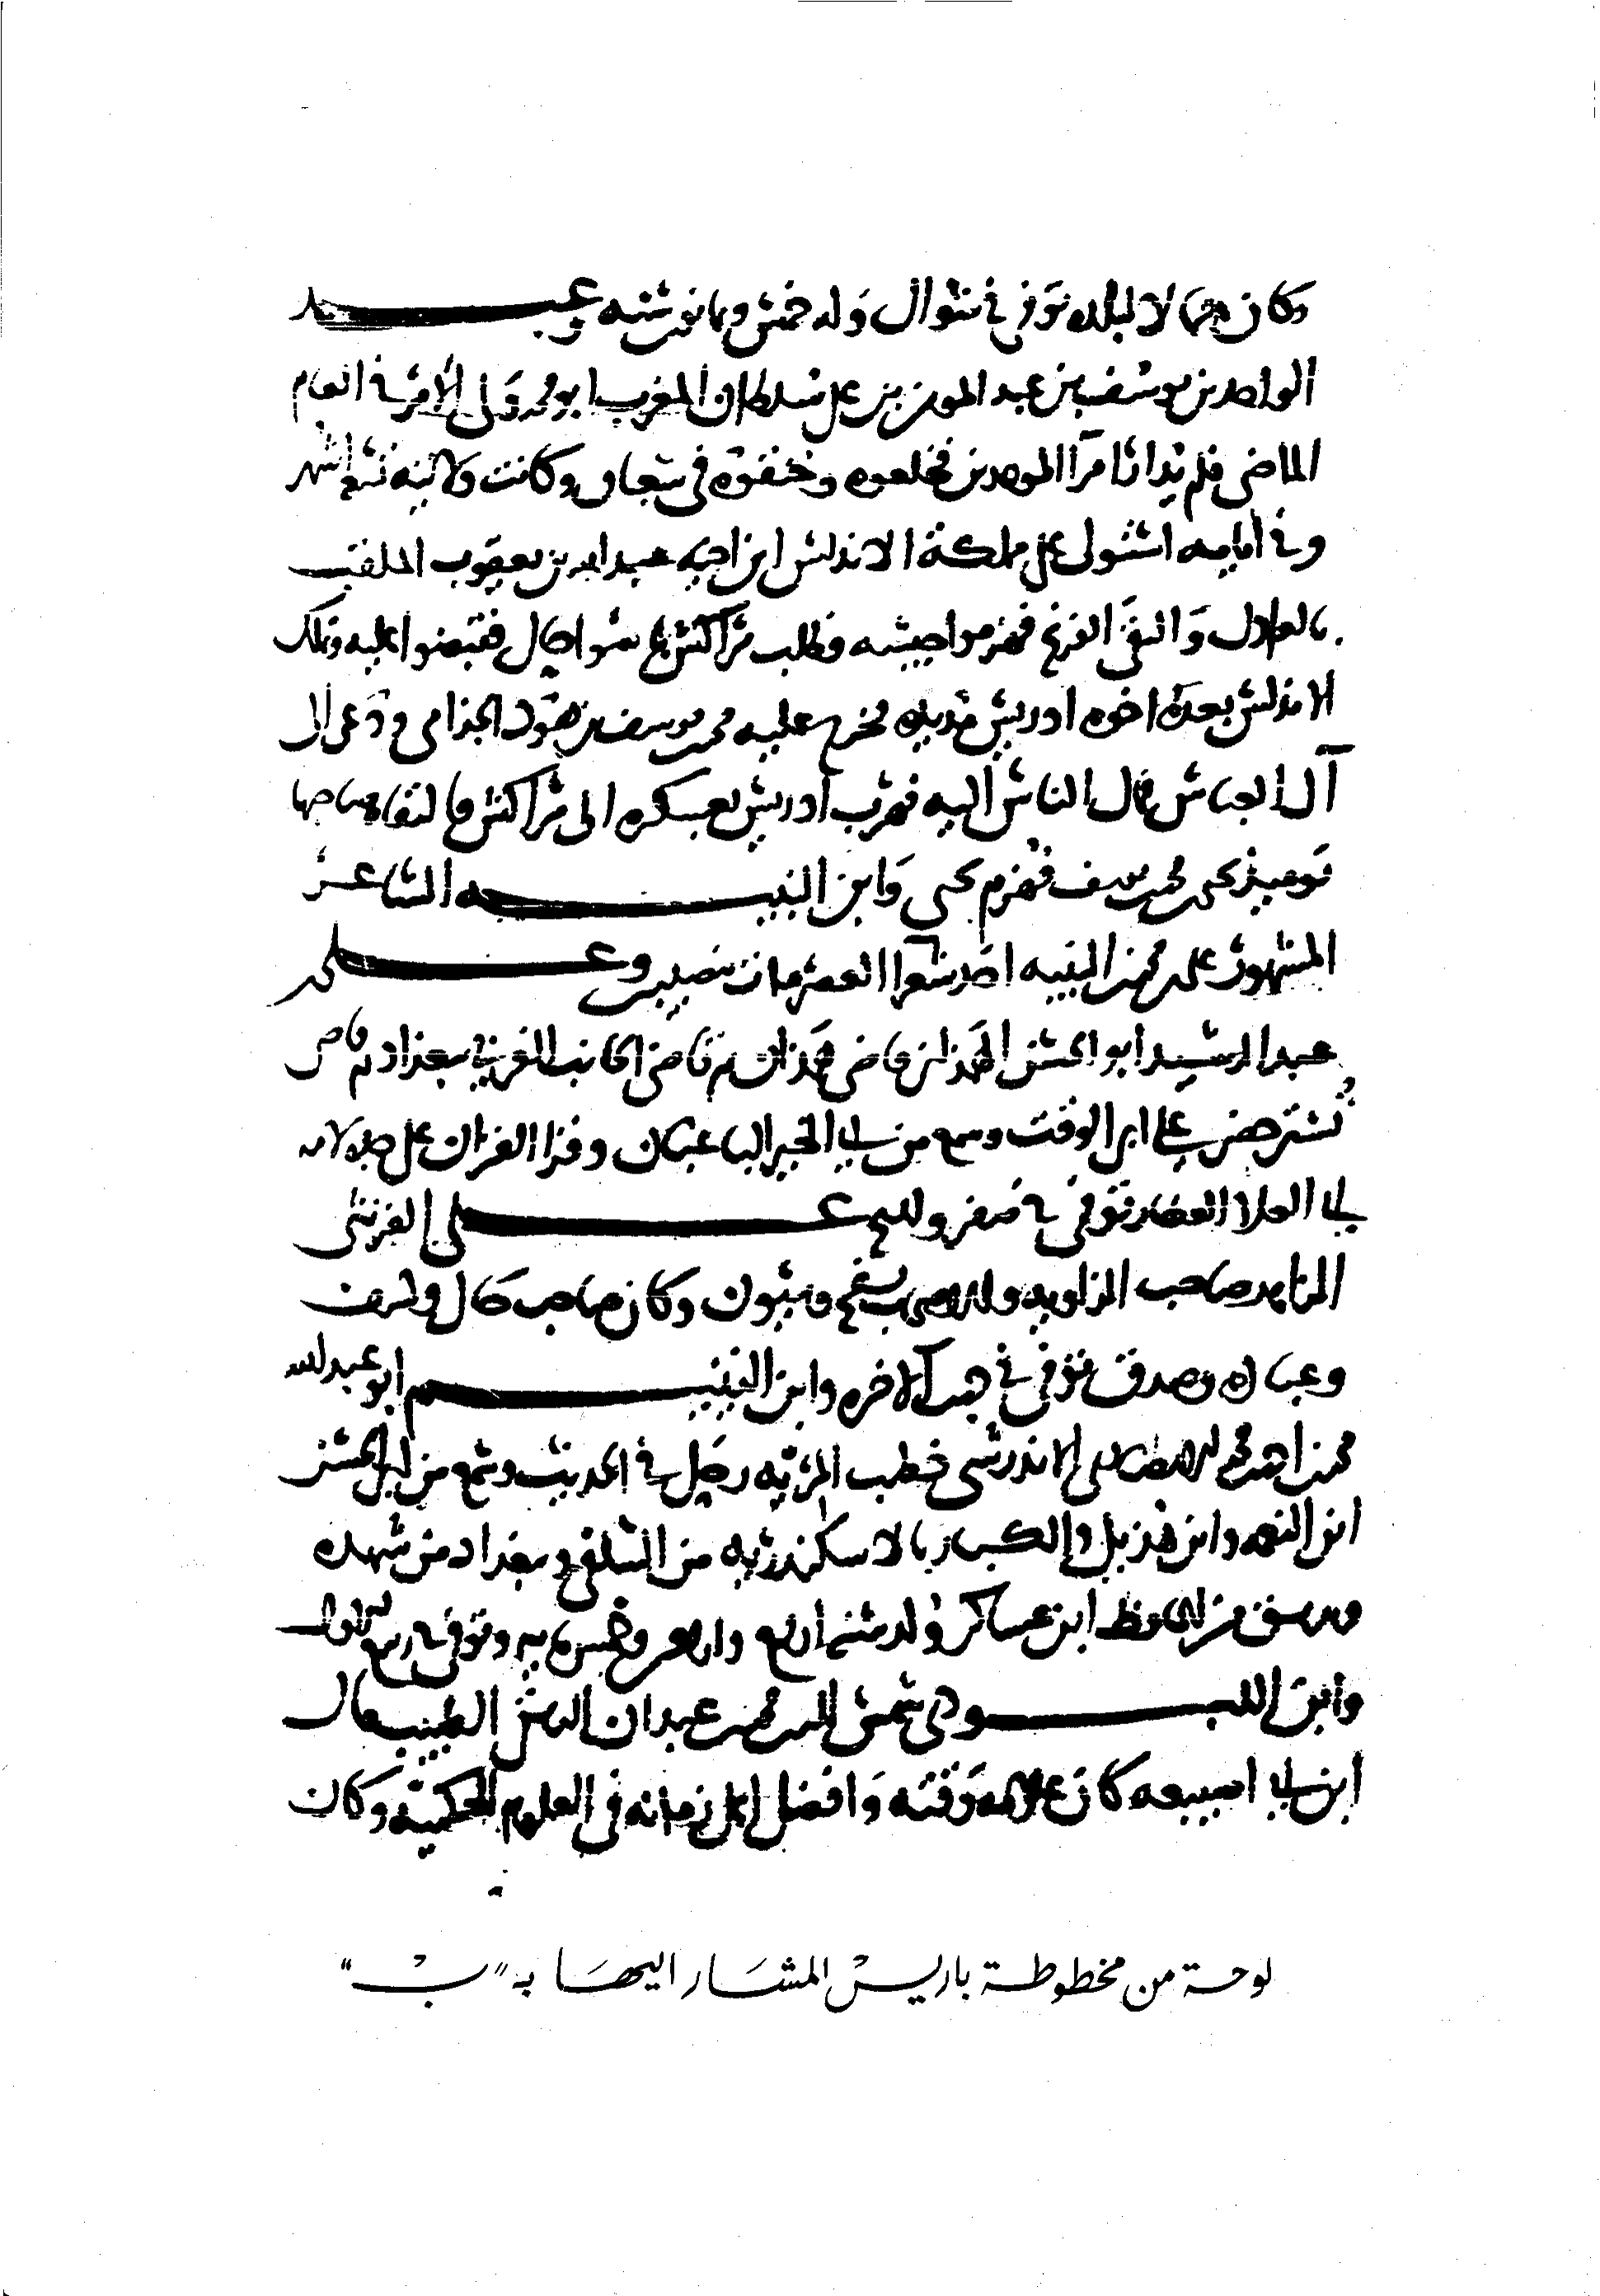 وكان جمالا لبلده توفي في شوال وله خمس وثمانون سنه وعبد
الواحد بن يوسف بن عبد المومن بن علي سلطان المغرب ابو محمد ولي الأمر في العام
الماضي فلم يدار امرآ الموحدين فخلعوه وخنقوه في شعبان وكانت ولايته تسعة اشهر
وفي أيامه استولى على مملكة الاندلس ابن اخيه عبد الله بن يعقوب الملقب
بالعادل والتقى الفرنج فهزموا جيشه وطلب مراكش باسوا حال فقبضوا عليه وتملك
الاندلس بعده اخوه ادريس مديده فخرج عليه محمد بن يوسف بن هود الجذامي ودعى الى
آل العباس فمال الناس اليه فهرب ادريس بعسكره الى مراكش فالتقاه صاحبها
يوميذ يحيى بن محمد بن يوسف فهزم يحيى وابن النبيه الشاعر
المشهور علي بن محمد بن النبيه احد شعرا العصر مات بنصيبين وعلي بن
عبد الرشيد ابو الحسن الهمذاني قاضي همذان ثم قاضي الجانب الغربي ببغداد ثم قاضي
تستر حضر علي ابي الوقت وسمع من ابي الخير الباغبان وقرا القران على جده لامه
ابي العلا العطار توفي في صفر والشيخ علي الفرنثي
الزاهد صاحب الزاويه والاصحاب بسفح قاسيون وكان صاحب حال وكشف
وعباده وصدق توفي في جمادى الاخره وابن اليتيم ابو عبد الله
محمد بن احمد بن محمد الانصاري الاندرشي خطيب المريه رحل في الحديث وسمع من ابي الحسن
ابن النعمه وابن هذيل والكبار بالاسكندريه من السلفي وببغداد من شهده
وبدمشق من الحافظ ابن عساكر ولد سنه اربع واربعين وخمس مايه وتوفي في ربيع الاول
وابن اللبودي شمس الدين محمد بن عبدان الدمشقي الطبيب قال
ابن ابي اصيبعه كان علامه وقته وافضل اهل زمانه في العلوم الحكميه وكان
لوحة من مخطوطة باريس المشار اليها بـ "ب"